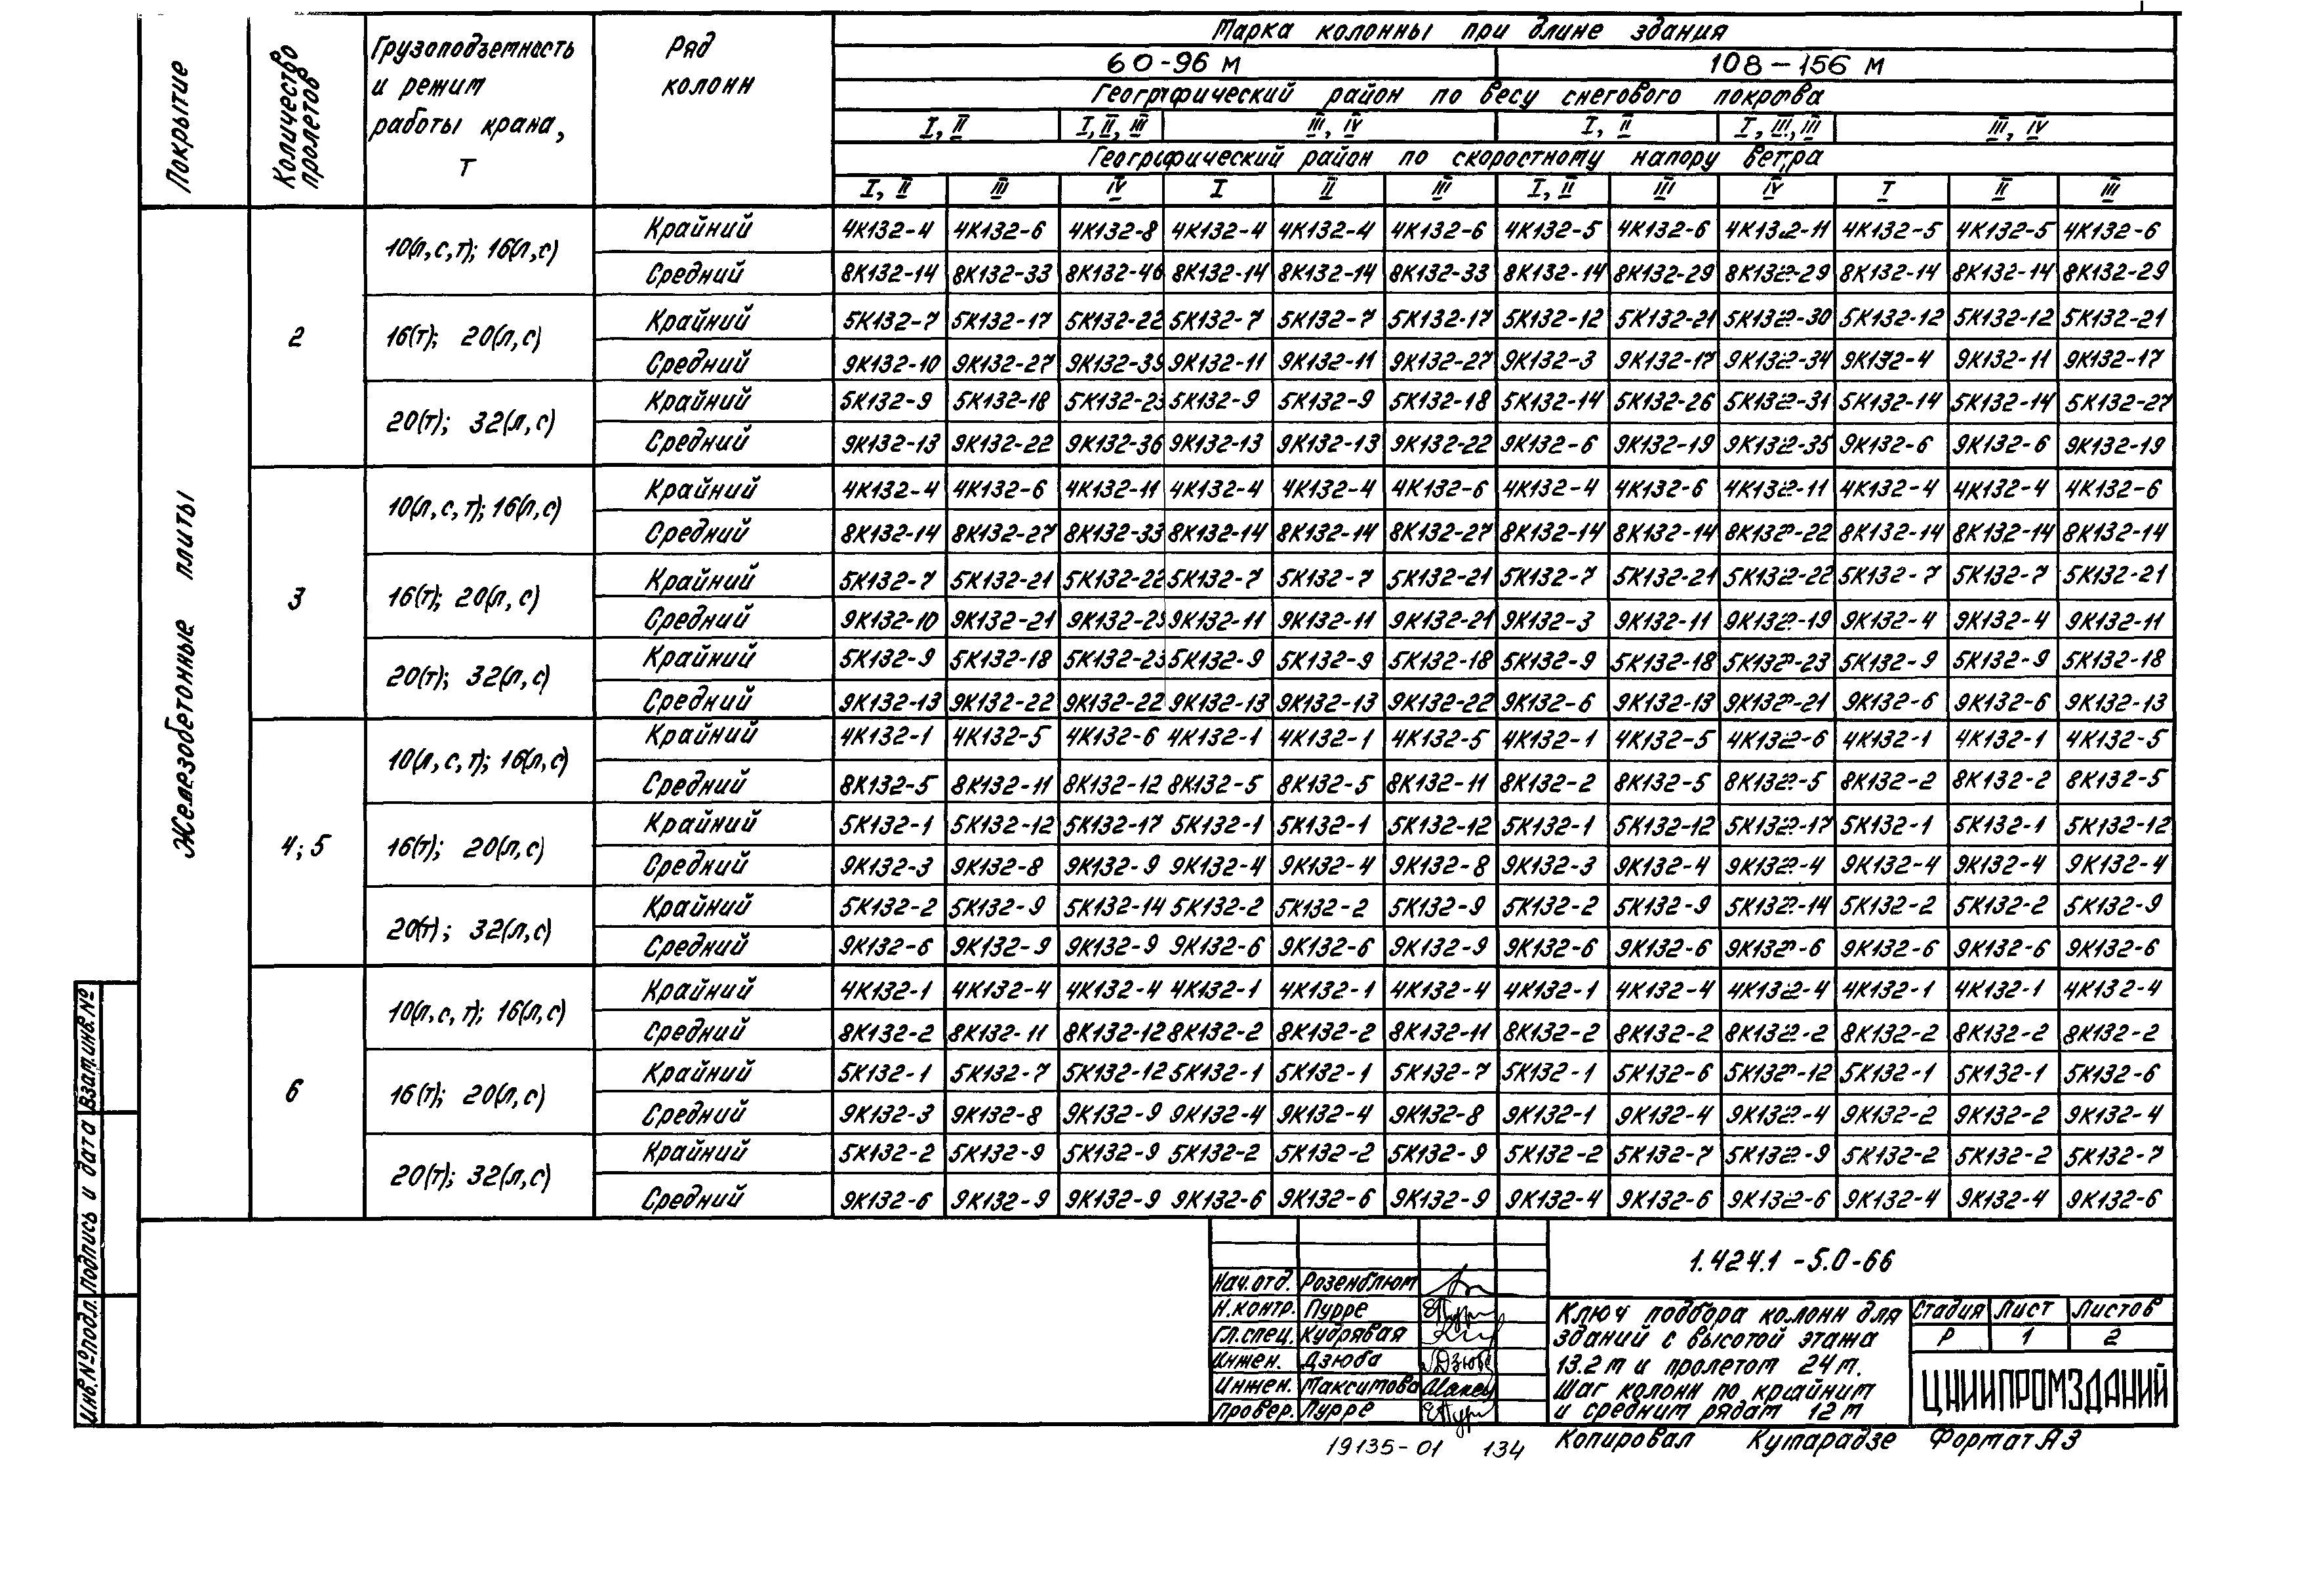 Марка колонны при длине здания
Покрытие
Количество пролетов
Грузоподъемность и режим работы крана, т
Ряд колонн
60-96 м 108-156 м
Географический район по весу снегового покрова
I, II I, II, III III, IV I, II I, III, III III, IV
Географический район по скоростному напору ветра
I, II III IV I II III I, II III IV I II III
Железобетонные плиты
2
10(л,с,т); 16(л,с)
Крайний 4К132-4 4К132-6 4К132-8 4К132-4 4К132-4 4К132-6 4К132-5 4К132-6 4К132-11 4К132-5 4К132-5 4К132-6
Средний 8К132-14 8К132-33 8К132-46 8К132-14 8К132-14 8К132-33 8К132-14 8К132-29 8К132-29 8К132-14 8К132-14 8К132-29
16(т); 20(л,с)
Крайний 5К132-7 5К132-17 5К132-22 5К132-7 5К132-7 5К132-17 5К132-12 5К132-21 5К132-30 5К132-12 5К132-12 5К132-21
Средний 9К132-10 9К132-27 9К132-39 9К132-11 9К132-11 9К132-27 9К132-3 9К132-17 9К132-34 9К132-4 9К132-11 9К132-17
20(т); 32(л,с)
Крайний 5К132-9 5К132-18 5К132-23 5К132-9 5К132-9 5К132-18 5К132-14 5К132-26 5К132-31 5К132-14 5К132-14 5К132-27
Средний 9К132-13 9К132-22 9К132-36 9К132-13 9К132-13 9К132-22 9К132-6 9К132-19 9К132-35 9К132-6 9К132-6 9К132-19
3
10(л,с,т); 16(л,с)
Крайний 4К132-4 4К132-6 4К132-11 4К132-4 4К132-4 4К132-6 4К132-4 4К132-6 4К132-11 4К132-4 4К132-4 4К132-6
Средний 8К132-14 8К132-27 8К132-33 8К132-14 8К132-14 8К132-27 8К132-14 8К132-14 8К132-22 8К132-14 8К132-14 8К132-14
16(т); 20(л,с)
Крайний 5К132-7 5К132-21 5К132-22 5К132-7 5К132-7 5К132-21 5К132-7 5К132-21 5К132-22 5К132-7 5К132-7 5К132-21
Средний 9К132-10 9К132-21 9К132-29 9К132-11 9К132-11 9К132-21 9К132-3 9К132-11 9К132-19 9К132-4 9К132-4 9К132-11
20(т); 32(л,с)
Крайний 5К132-9 5К132-18 5К132-23 5К132-9 5К132-9 5К132-18 5К132-9 5К132-18 5К132-23 5К132-9 5К132-9 5К132-18
Средний 9К132-13 9К132-22 9К132-22 9К132-13 9К132-13 9К132-22 9К132-6 9К132-13 9К132-21 9К132-6 9К132-6 9К132-13
4; 5
10(л,с,т); 16(л,с)
Крайний 4К132-1 4К132-5 4К132-6 4К132-1 4К132-1 4К132-5 4К132-1 4К132-5 4К132-6 4К132-1 4К132-1 4К132-5
Средний 8К132-5 8К132-11 8К132-12 8К132-5 8К132-5 8К132-11 8К132-2 8К132-5 8К132-5 8К132-2 8К132-2 8К132-5
16(т); 20(л,с)
Крайний 5К132-1 5К132-12 5К132-17 5К132-1 5К132-1 5К132-12 5К132-1 5К132-12 5К132-17 5К132-1 5К132-1 5К132-12
Средний 9К132-3 9К132-8 9К132-9 9К132-4 9К132-4 9К132-8 9К132-3 9К132-4 9К132-4 9К132-4 9К132-4 9К132-4
20(т); 32(л,с)
Крайний 5К132-2 5К132-9 5К132-14 5К132-2 5К132-2 5К132-9 5К132-2 5К132-9 5К132-14 5К132-2 5К132-2 5К132-9
Средний 9К132-6 9К132-9 9К132-9 9К132-6 9К132-6 9К132-9 9К132-6 9К132-6 9К132-6 9К132-6 9К132-6 9К132-6
6
10(л,с,т); 16(л,с)
Крайний 4К132-1 4К132-4 4К132-4 4К132-1 4К132-1 4К132-4 4К132-1 4К132-4 4К132-4 4К132-1 4К132-1 4К132-4
Средний 8К132-2 8К132-11 8К132-12 8К132-2 8К132-2 8К132-11 8К132-2 8К132-2 8К132-2 8К132-2 8К132-2 8К132-2
16(т); 20(л,с)
Крайний 5К132-1 5К132-7 5К132-12 5К132-1 5К132-1 5К132-7 5К132-1 5К132-6 5К132-12 5К132-1 5К132-1 5К132-6
Средний 9К132-3 9К132-8 9К132-9 9К132-4 9К132-4 9К132-8 9К132-1 9К132-4 9К132-4 9К132-2 9К132-2 9К132-4
20(т); 32(л,с)
Крайний 5К132-2 5К132-9 5К132-9 5К132-2 5К132-2 5К132-9 5К132-2 5К132-7 5К132-9 5К132-2 5К132-2 5К132-7
Средний 9К132-6 9К132-9 9К132-9 9К132-6 9К132-6 9К132-9 9К132-4 9К132-6 9К132-6 9К132-4 9К132-4 9К132-6
Инв.№подл. Подпись и дата Взам.инв.№
1.424.1-5.0-66
Нач.отд. Розенблюм
Н.контр. Пурре
Гл.спец. Кудрявая
Инжен. Дзюба
Инжен. Максимова
Провер. Пурре
Ключ подбора колонн для
зданий с высотой этажа
13.2 м и пролетом 24 м.
Шаг колонн по крайним
и средним рядам 12 м
Стадия Лист Листов
Р 1 2
ЦНИИПРОМЗДАНИЙ
19135-01 134 Копировал Кутарадзе Формат А3